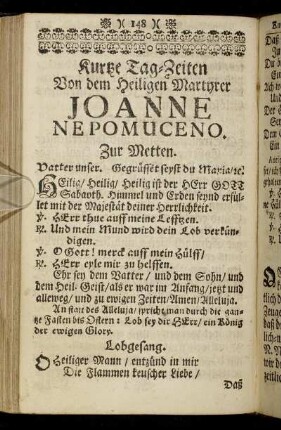 )( 148 )(
Kurtze Tag-Zeiten
Von dem Heiligen Martyrer
JOANNE
NEPOMUCENO.
Zur Metten.
Vatter unser. Gegrüsset seyst du Maria/ꝛc.
HEilig/ Heilig/ Heilig ist der HErr GOTT
Sabaoth. Himmel und Erden seynd erfül-
let mit der Majestät deiner Herrlichkeit.
℣. HErr thue auff meine Lefftzen.
℟. Und mein Mund wird dein Lob verkün-
digen.
℣. O Gott! merck auff mein Hülff/
℟. HErr eyle mir zu helffen.
Ehr sey dem Vatter/ und dem Sohn/ und
dem Heil. Geist/ als er war im Anfang/ jetzt und
alleweg/ und zu ewigen Zeiten/ Amen/ Alleluja.
An statt des Alleluja/ spricht man durch die gan-
tze Fasten bis Ostern: Lob sey dir HErr/ ein König
der ewigen Glory.
Lobgesang.
O Heiliger Mann/ entzünd in mir
Die Flammen keuscher Liebe/
Daß